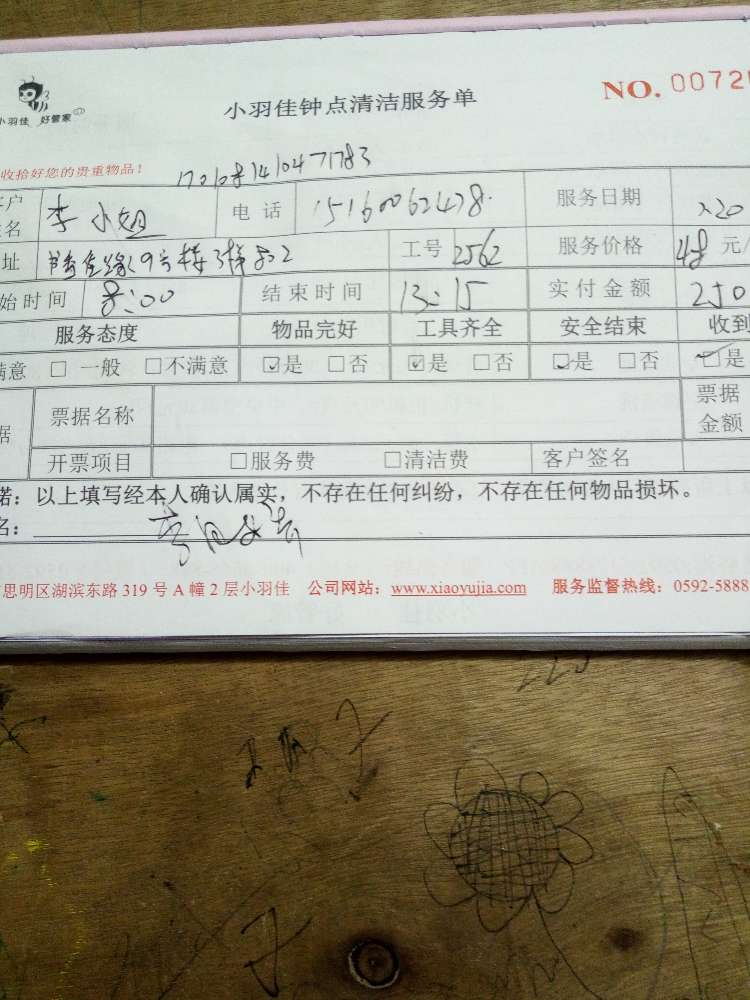 小羽佳 好管家
小羽佳钟点清洁服务单
NO. 0072
收拾好您的贵重物品！
客户姓名 李小姐 电话 15160062478 服务日期 220
址 工号 2562 服务价格 48 元/
始时间 8:00 结束时间 13:15 实付金额 250
服务态度 物品完好 工具齐全 安全结束 收到
满意 □ 一般 □不满意 ☑是 □否 ☑是 □否 ☑是 □否 ☑是
据 票据名称 票据金额
开票项目 □服务费 □清洁费 客户签名
诺：以上填写经本人确认属实，不存在任何纠纷，不存在任何物品损坏。
名：
思明区湖滨东路 319 号 A 幢 2 层小羽佳 公司网站：www.xiaoyujia.com 服务监督热线：0592-5888